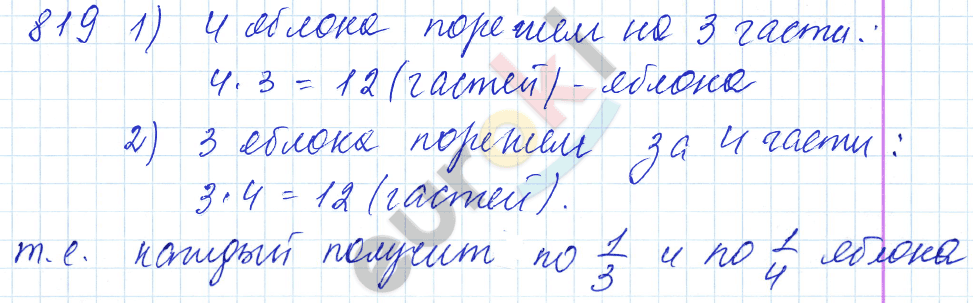 819 1) 4 яблока порежем на 3 части:
4 · 3 = 12 (частей) - яблока
2) 3 яблока порежем за 4 части:
3 · 4 = 12 (частей).
т.е. каждый получит по 1/3 и по 1/4 яблока
euroki